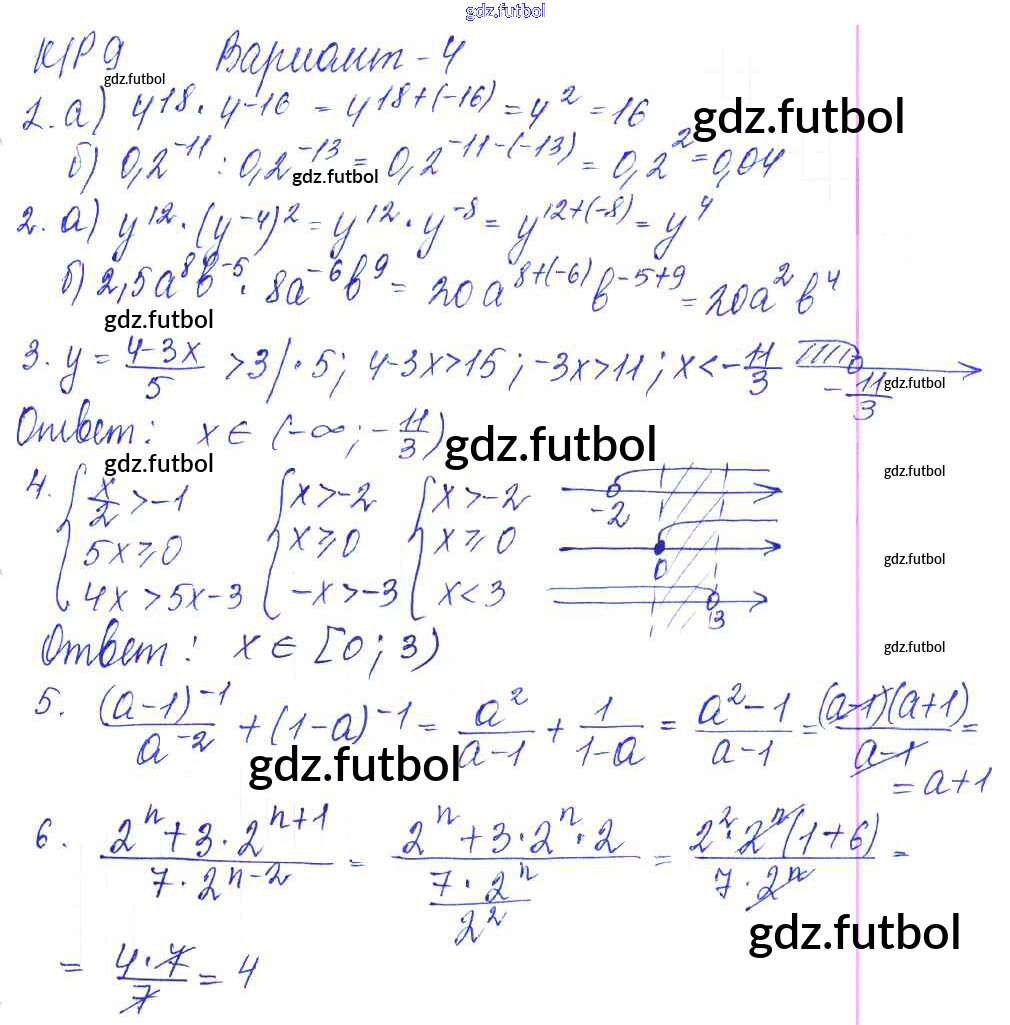 gdz.futbol
К/Р 9 Вариант - 4
gdz.futbol
1. а) 4^18 · 4^-16 = 4^(18+(-16)) = 4^2 = 16 gdz.futbol
б) 0,2^-11 : 0,2^-13 = 0,2^(-11-(-13)) = 0,2^2 = 0,04
gdz.futbol
2. а) y^12 · (y^-4)^2 = y^12 · y^-8 = y^(12+(-8)) = y^4
б) 2,5a^8b^-5 · 8a^-6b^9 = 20a^(8+(-6))b^(-5+9) = 20a^2b^4
gdz.futbol
3. y = (4-3x)/5 > 3 | · 5; 4-3x>15; -3x>11; x<-11/3 -11/3 gdz.futbol
Ответ: x ∈ (-∞; -11/3) gdz.futbol
gdz.futbol gdz.futbol
4. { x/2 > -1 { x > -2 { x > -2 -2
5x ⩾ 0 x ⩾ 0 x ⩾ 0 0 gdz.futbol
4x > 5x-3 -x > -3 x < 3 3
Ответ: x ∈ [0; 3) gdz.futbol
5. (a-1)^-1/a^-2 + (1-a)^-1 = a^2/(a-1) + 1/(1-a) = (a^2-1)/(a-1) = (a-1)(a+1)/(a-1) =
gdz.futbol = a+1
6. (2^n + 3·2^(n+1))/(7·2^(n-2)) = (2^n + 3·2^n·2)/(7·2^n/2^2) = 2^2·2^n(1+6)/(7·2^n) =
gdz.futbol
= 4·7/7 = 4